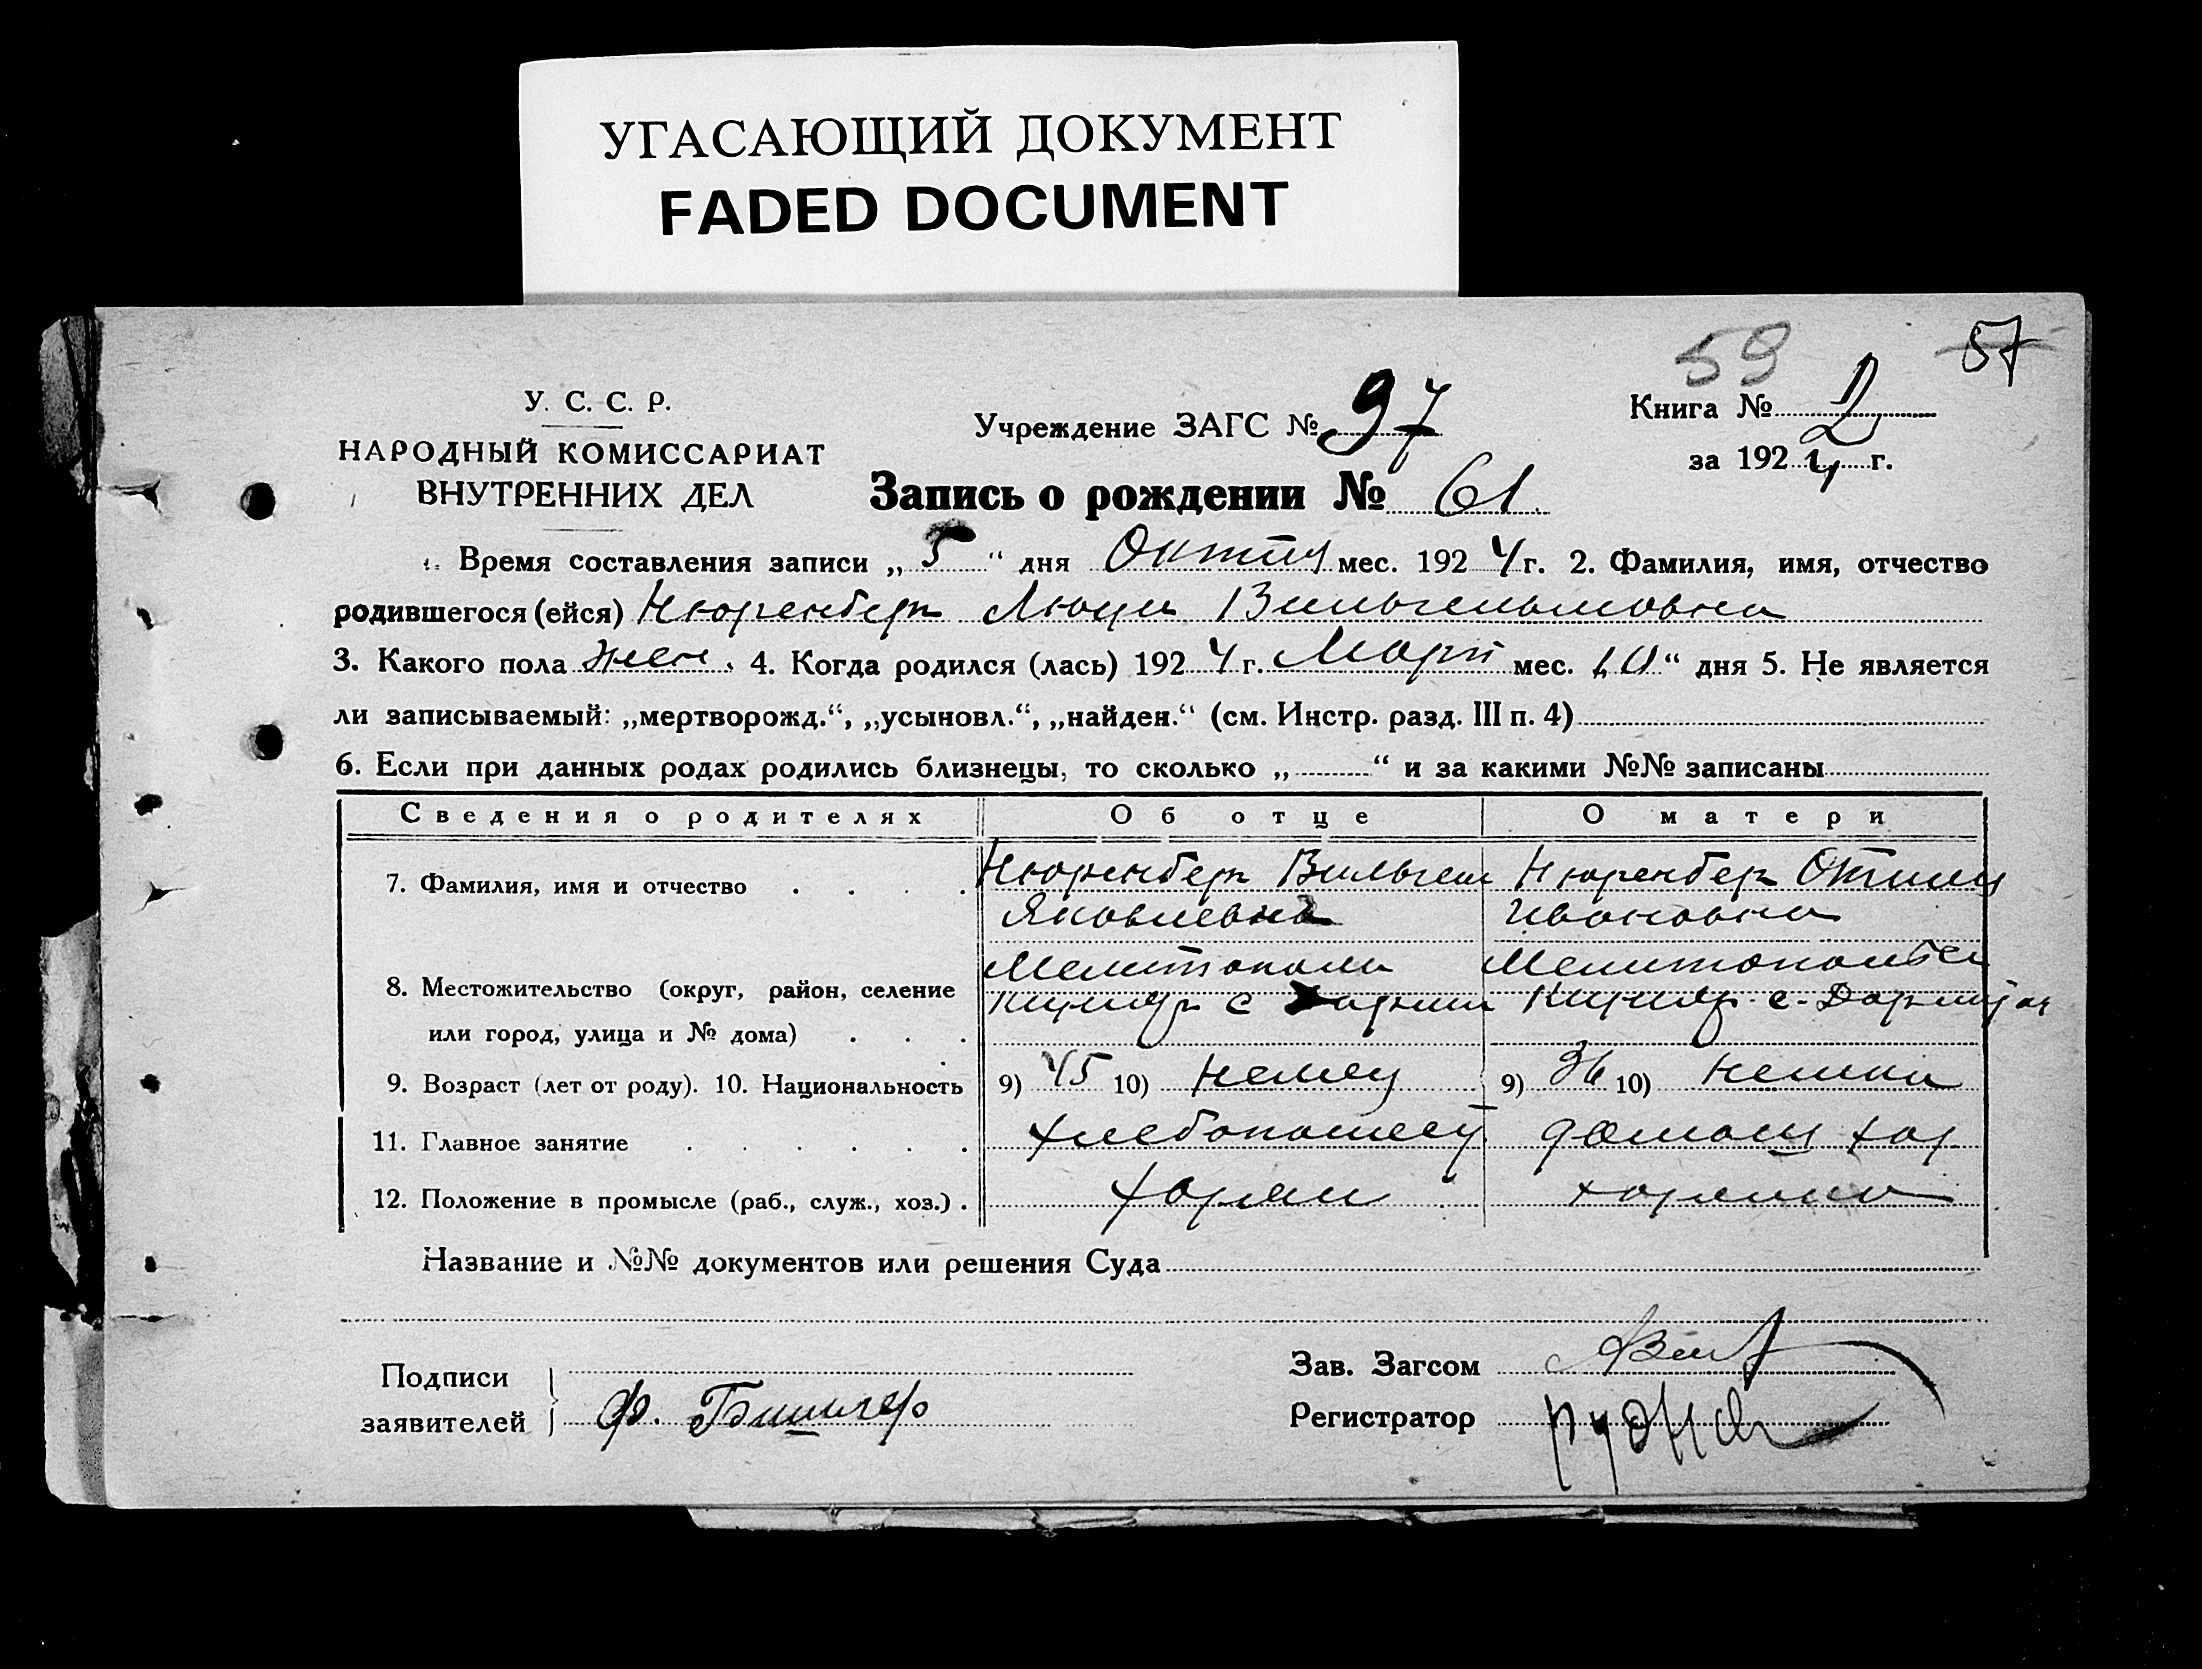 УГАСАЮЩИЙ ДОКУМЕНТ
FADED DOCUMENT
59 57
У. С. С. Р.
НАРОДНЫЙ КОМИССАРИАТ
ВНУТРЕННИХ ДЕЛ
Учреждение ЗАГС № 97
Книга № 2
за 1924 г.
Запись о рождении № 61.
1. Время составления записи „5“ дня Октяб мес. 1924 г. 2. Фамилия, имя, отчество
родившегося (ейся) Нюренберг Люци Вильгельмовна
3. Какого пола жен. 4. Когда родился (лась) 1924 г. Март мес. 10“ дня 5. Не является
ли записываемый: „мертворожд.“, „усыновл.“, „найден.“ (см. Инстр. разд. III п. 4)
6. Если при данных родах родились близнецы, то сколько „ “ и за какими №№ записаны
Сведения о родителях Об отце О матери
7. Фамилия, имя и отчество Нюренберг Вильгелм Нюренберг
Яковлевна Ивановна
8. Местожительство (округ, район, селение
или город, улица и № дома)
9. Возраст (лет от роду). 10. Национальность 9) 45 10) немец 9) 36 10) немка
11. Главное занятие хлебопашец домаш хоз
12. Положение в промысле (раб., служ., хоз.) хозяин хозяика
Название и №№ документов или решения Суда
Подписи
заявителей Ф.
Зав. Загсом
Регистратор